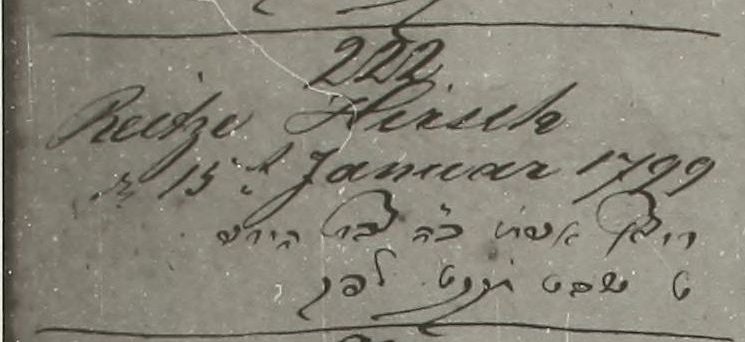 222
Reitze Hirsch
d. 15t Januar 1799
אשת כ"ה צבי הירש
ט שבט תקנט לפק